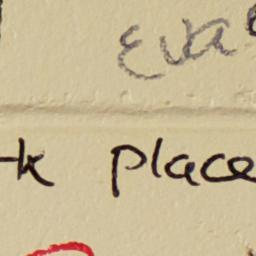 Eva
k place